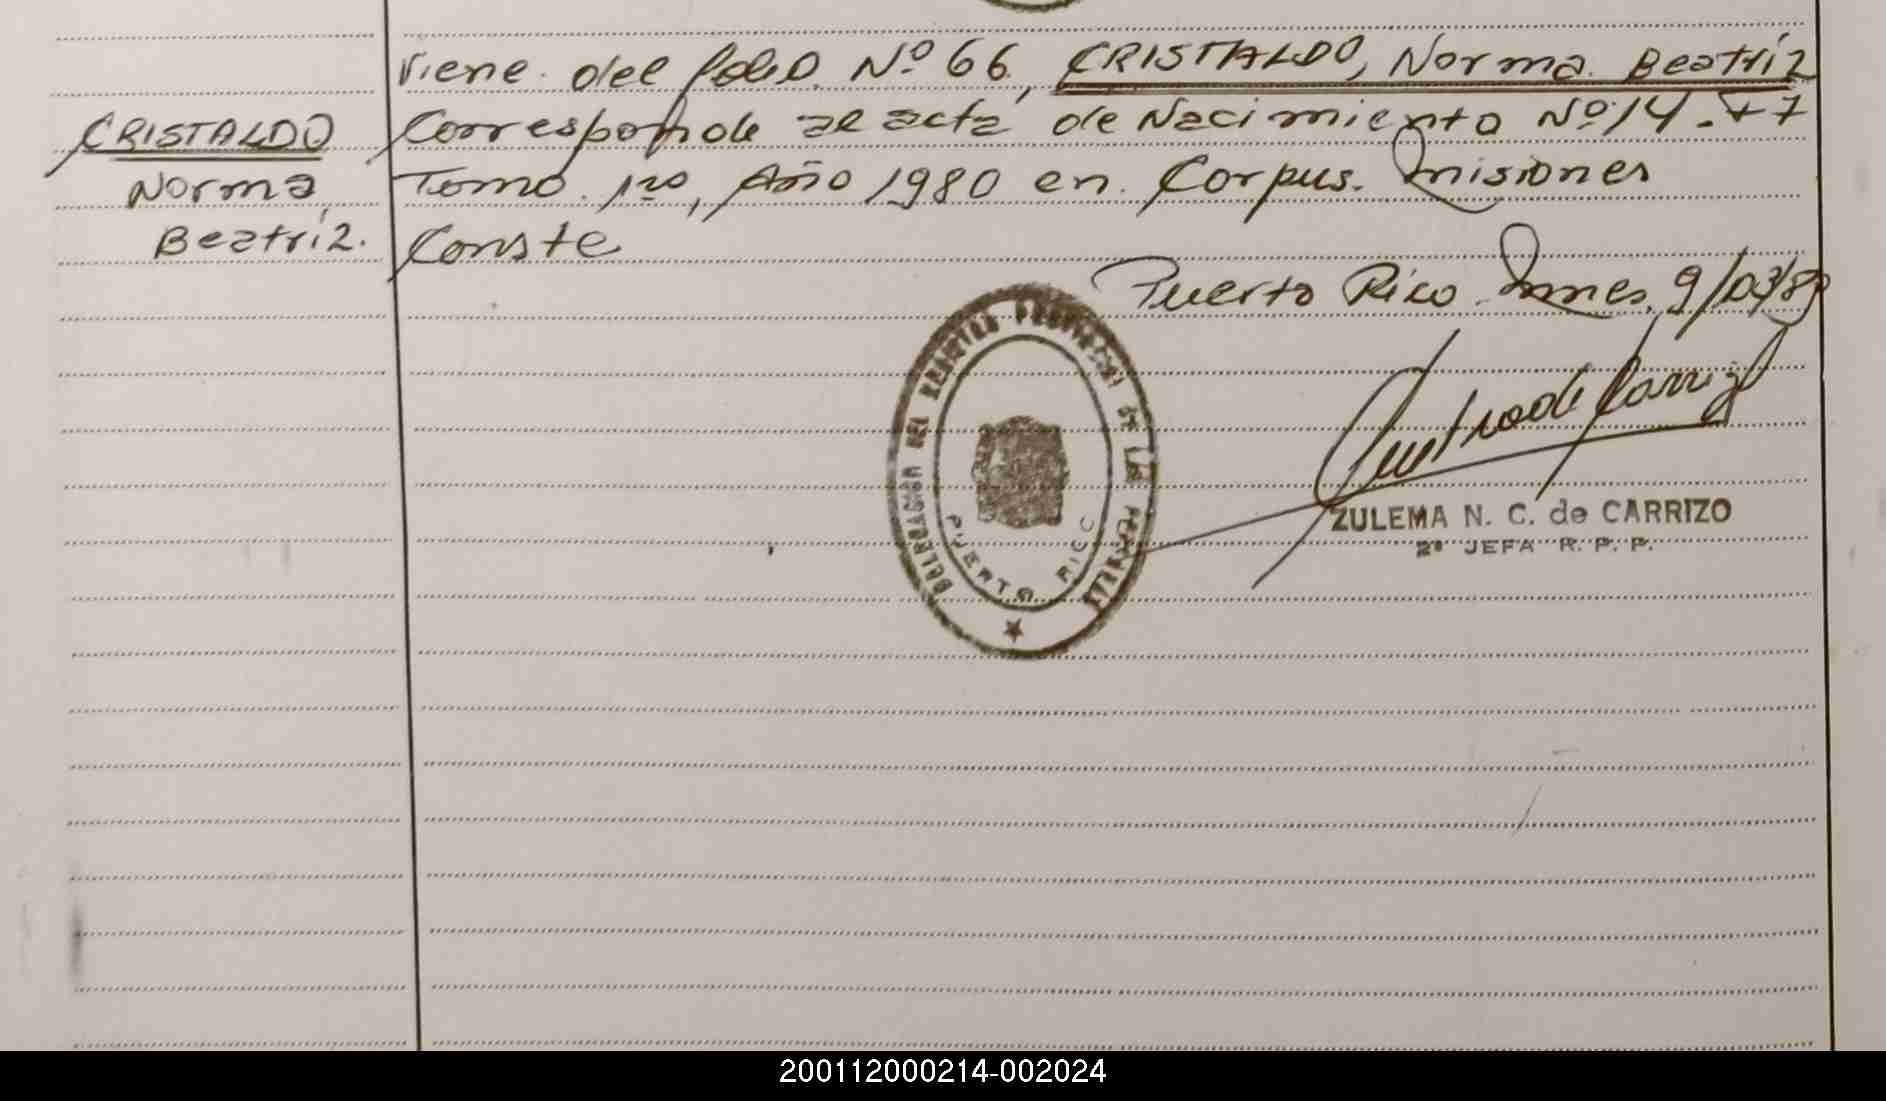 Viene del folio Nº 66, CRISTALDO, Norma Beatríz
CRISTALDO
Norma
Beatríz.
Corresponde al acta de Nacimiento Nº 14.
Tomo 1ro, Año 1980 en Corpus. Misiones
Conste
Puerto Rico Mnes, 9/03/8
DELEGACION DEL REGISTRO PROVINCIAL DE LAS PERSONAS
PUERTO RICO
ZULEMA N. C. de CARRIZO
2ª JEFA R. P. P.
200112000214-002024